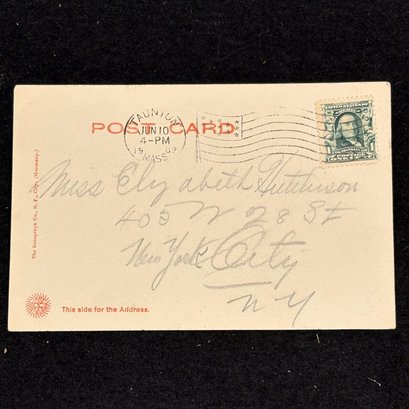 POST CARD
TAUNTON
JUN 10
4-PM
MASS.
Miss Elyzabeth Hutchinson
405 W 28 St
New York City
N Y
The Rotograph Co., N. Y. City. (Germany.)
This side for the Address.